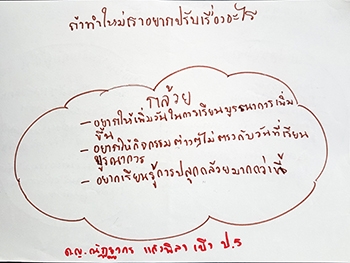 ถ้าทำใหม่เราอยากปรับเรื่องอะไร
กล้วย
- อยากให้เพิ่มวันในการเรียนบูรณาการเพิ่ม
ขึ้น
- อยากให้กิจกรรมต่างๆไม่ตรงกับวันที่เรียน
บูรณาการ
- อยากเรียนรู้การปลูกกล้วยมากกว่านี้
ด.ญ. แสงศิลา ป.5